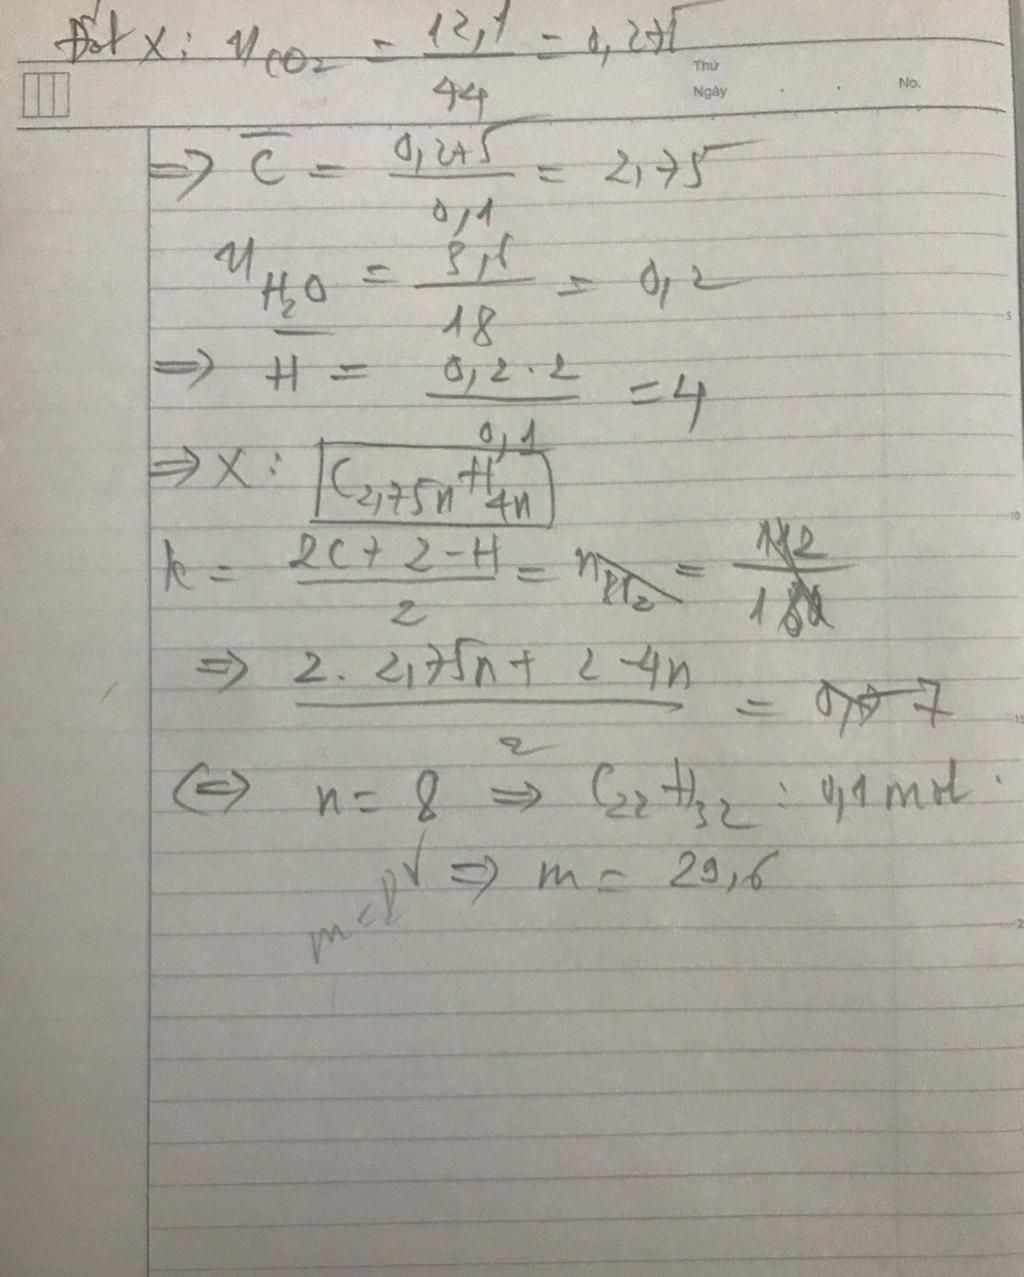 Đốt X: n CO2 = 12,1 / 44 = 0,275
Thứ
Ngày
No.
=> C̅ = 0,275 / 0,1 = 2,75
n H2O = 3,6 / 18 = 0,2
=> H̅ = 0,2 . 2 / 0,1 = 4
=> X: C2,75n H4n
k = 2C + 2 - H / 2 = n Br2 = 112 / 160
=> 2. 2,75n + 2 - 4n / 2 = 7
<=> n = 8 => C22H32 : 0,1 mol
=> m = 29,6